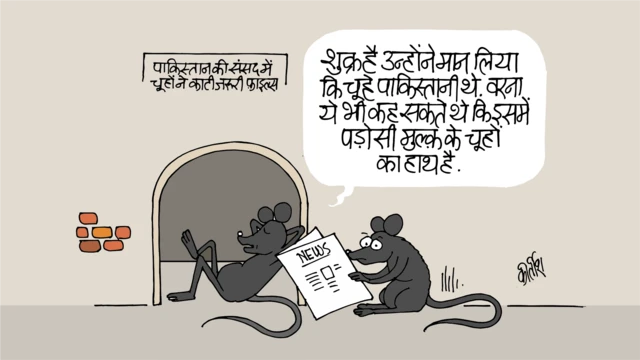 पाकिस्तान की संसद में
चूहों ने काटी जरुरी फ़ाइल्स
शुक्र है उन्होंने मान लिया
कि चूहे पाकिस्तानी थे. वरना
ये भी कह सकते थे कि इसमें
पड़ोसी मुल्क के चूहों
का हाथ है.
NEWS
कीर्तीश